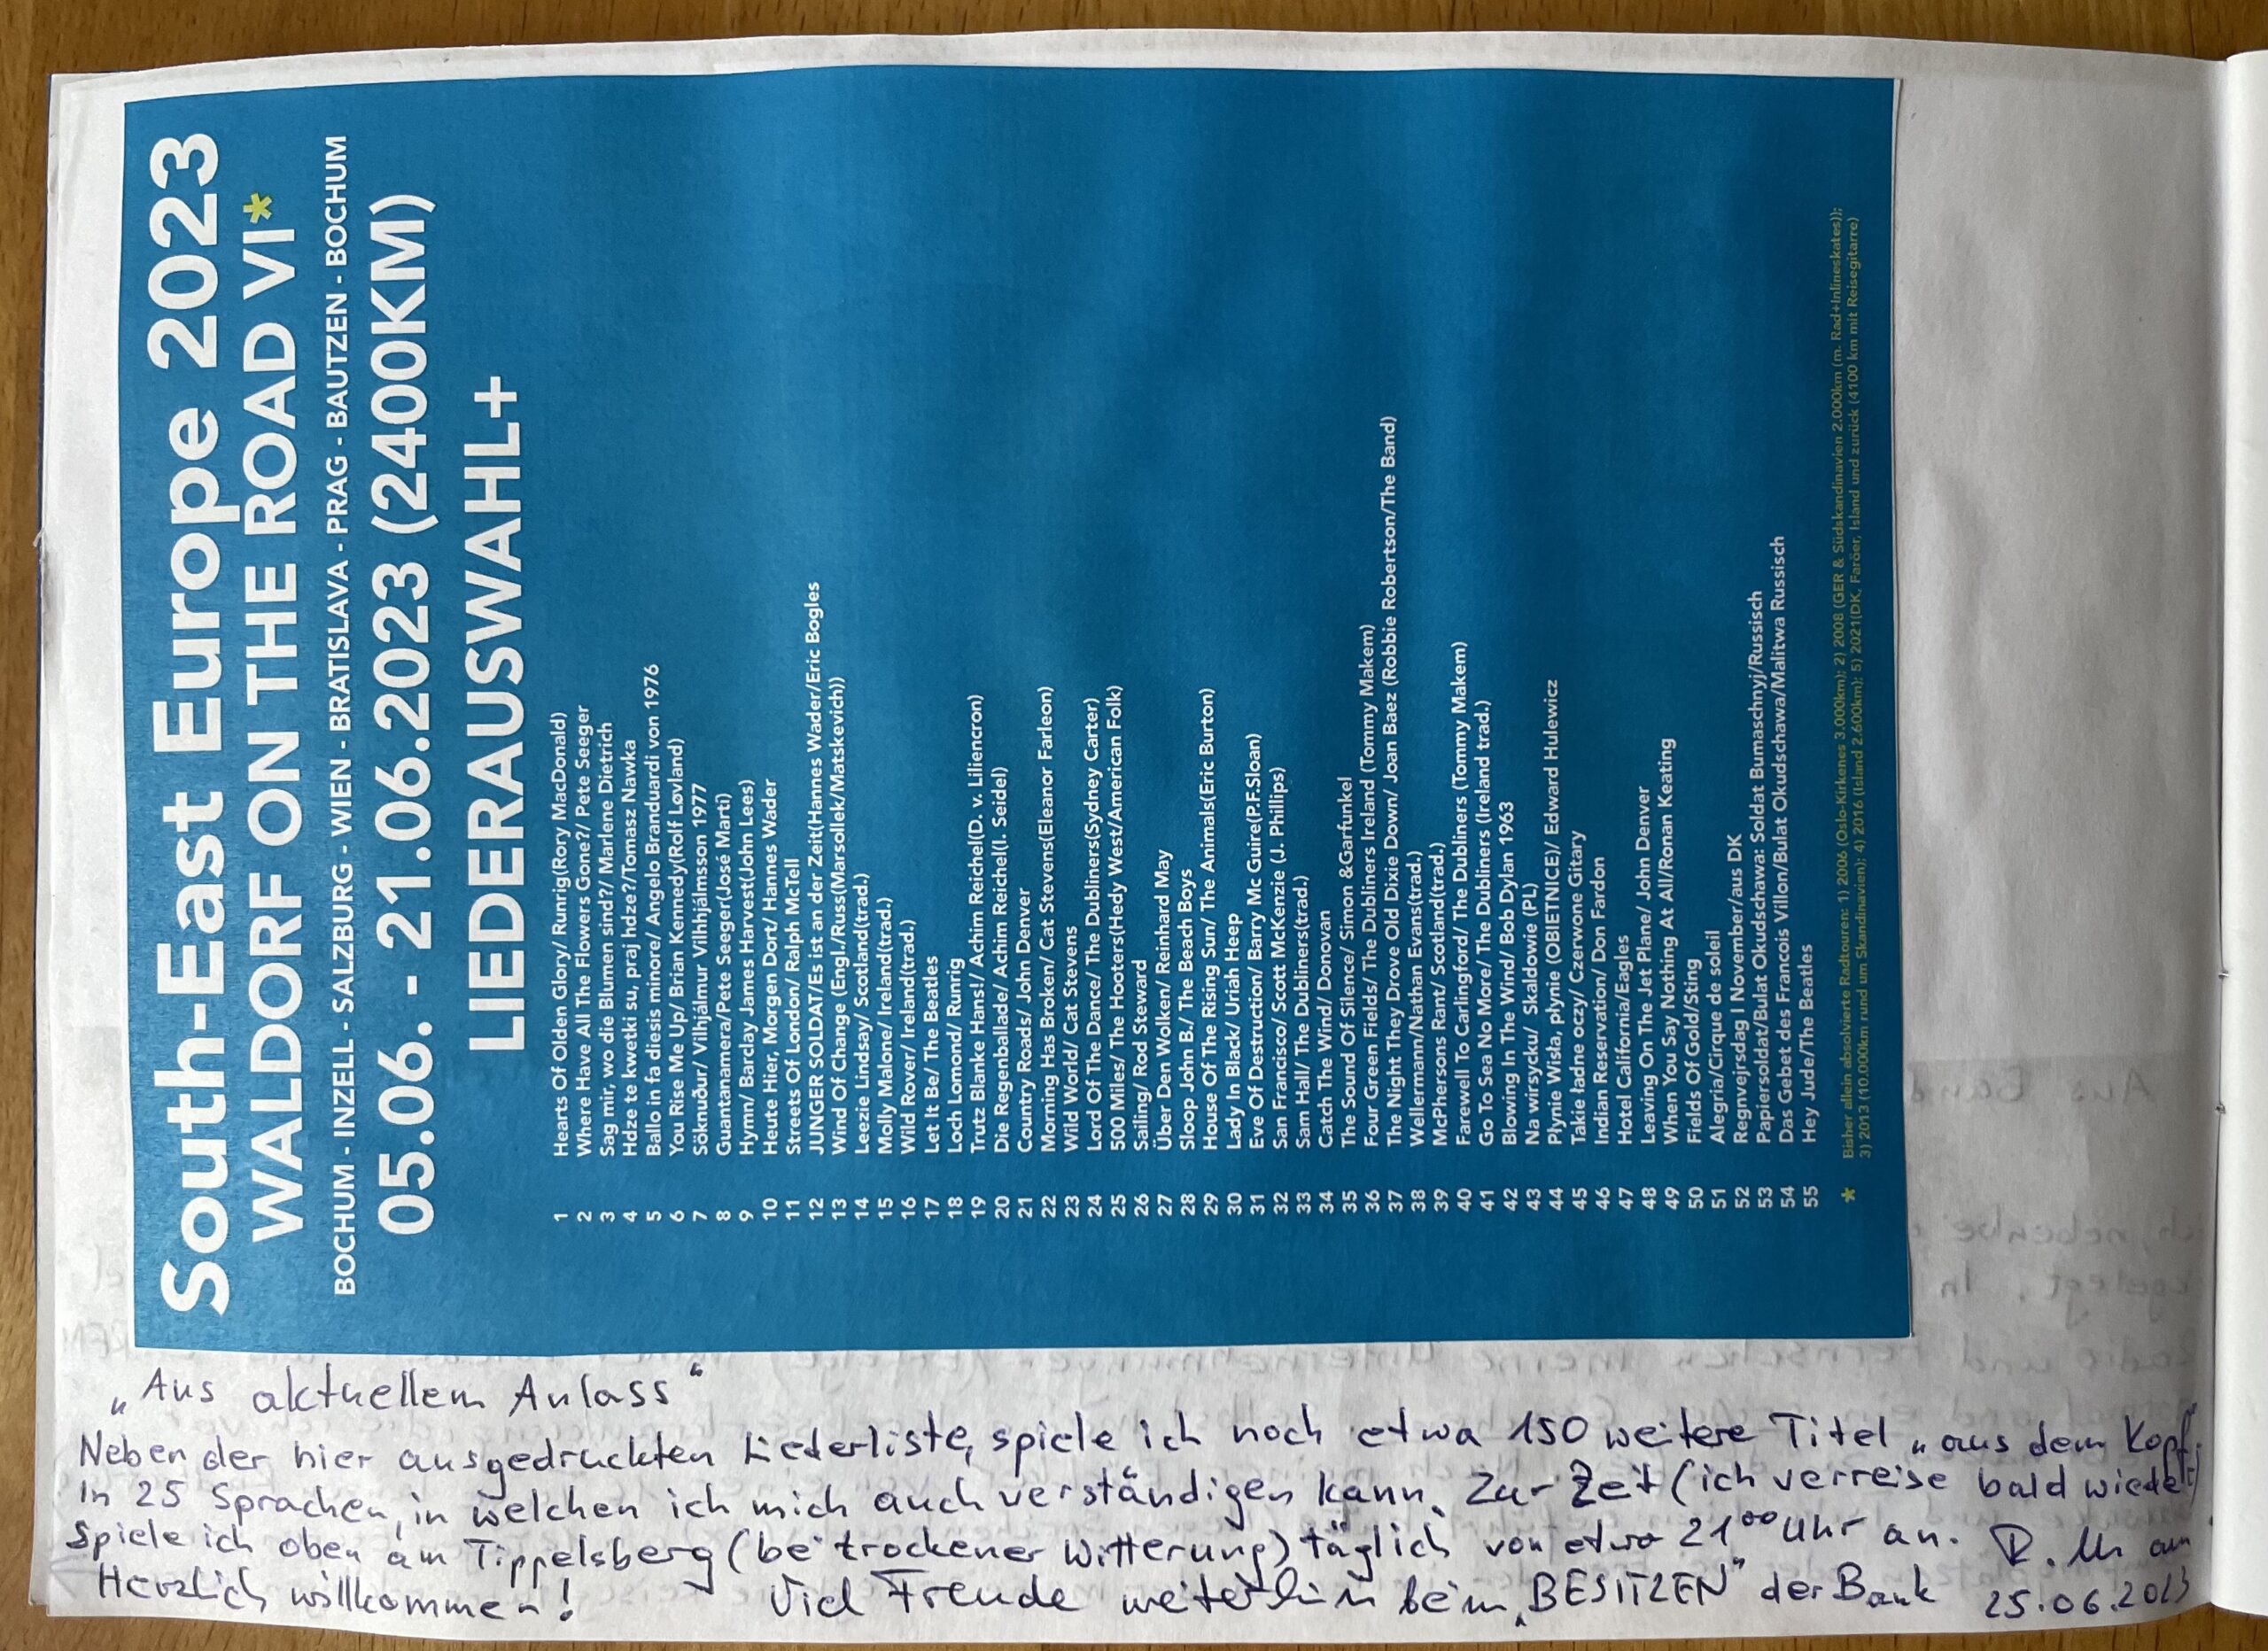 South-East Europe 2023
WALDORF ON THE ROAD VI*
BOCHUM - INZELL - SALZBURG - WIEN - BRATISLAVA - PRAG - BAUTZEN - BOCHUM
05.06. - 21.06.2023 (2400KM)
LIEDERAUSWAHL+
1 Hearts Of Olden Glory/ Runrig(Rory MacDonald)
2 Where Have All The Flowers Gone?/ Pete Seeger
3 Sag mir, wo die Blumen sind?/ Marlene Dietrich
4 Hdze te kwetki su, praj hdze?/Tomasz Nawka
5 Ballo in fa diesis minore/ Angelo Branduardi von 1976
6 You Rise Me Up/ Brian Kennedy(Rolf Løvland)
7 Söknuður/ Vilhjálmur Vilhjálmsson 1977
8 Guantanamera/Pete Seeger(José Martí)
9 Hymn/ Barclay James Harvest(John Lees)
10 Heute Hier, Morgen Dort/ Hannes Wader
11 Streets Of London/ Ralph McTell
12 JUNGER SOLDAT/Es ist an der Zeit(Hannes Wader/Eric Bogles
13 Wind Of Change (Engl./Russ(Marsollek/Matskevich))
14 Leezie Lindsay/ Scotland(trad.)
15 Molly Malone/ Ireland(trad.)
16 Wild Rover/ Ireland(trad.)
17 Let It Be/ The Beatles
18 Loch Lomond/ Runrig
19 Trutz Blanke Hans!/ Achim Reichel(D. v. Liliencron)
20 Die Regenballade/ Achim Reichel(I. Seidel)
21 Country Roads/ John Denver
22 Morning Has Broken/ Cat Stevens(Eleanor Farleon)
23 Wild World/ Cat Stevens
24 Lord Of The Dance/ The Dubliners(Sydney Carter)
25 500 Miles/ The Hooters(Hedy West/American Folk)
26 Sailing/ Rod Steward
27 Über Den Wolken/ Reinhard May
28 Sloop John B./ The Beach Boys
29 House Of The Rising Sun/ The Animals(Eric Burton)
30 Lady In Black/ Uriah Heep
31 Eve Of Destruction/ Barry Mc Guire(P.F.Sloan)
32 San Francisco/ Scott McKenzie (J. Phillips)
33 Sam Hall/ The Dubliners(trad.)
34 Catch The Wind/ Donovan
35 The Sound Of Silence/ Simon &Garfunkel
36 Four Green Fields/ The Dubliners Ireland (Tommy Makem)
37 The Night They Drove Old Dixie Down/ Joan Baez (Robbie Robertson/The Band)
38 Wellermann/Nathan Evans(trad.)
39 McPhersons Rant/ Scotland(trad.)
40 Farewell To Carlingford/ The Dubliners (Tommy Makem)
41 Go To Sea No More/ The Dubliners (Ireland trad.)
42 Blowing In The Wind/ Bob Dylan 1963
43 Na wirsycku/ Skaldowie (PL)
44 Płynie Wisła, płynie (OBIETNICE)/ Edward Hulewicz
45 Takie ładne oczy/ Czerwone Gitary
46 Indian Reservation/ Don Fardon
47 Hotel California/Eagles
48 Leaving On The Jet Plane/ John Denver
49 When You Say Nothing At All/Ronan Keating
50 Fields Of Gold/Sting
51 Alegria/Cirque de soleil
52 Regnvejrsdag I November/aus DK
53 Papiersoldat/Bulat Okudschawa: Soldat Bumaschnyj/Russisch
54 Das Gebet des Francois Villon/Bulat Okudschawa/Malitwa Russisch
55 Hey Jude/The Beatles
* Bisher allein absolvierte Radtouren: 1) 2006 (Oslo-Kirkenes 3.000km); 2) 2008 (GER & Südskandinavien 2.000km (m. Rad+Inlineskates));
3) 2013 (10.000km rund um Skandinavien); 4) 2016 (Island 2.600km); 5) 2021(DK, Faröer, Island und zurück (4100 km mit Reisegitarre)
„Aus aktuellem Anlass“
Neben der hier ausgedruckten Liederliste, spiele ich noch etwa 150 weitere Titel „aus dem Kopf“.
In 25 Sprachen, in welchen ich mich auch verständigen kann. Zur Zeit (ich verreise bald wieder)
spiele ich oben am Tippelsberg (bei trockener Witterung) täglich von etwa 21⁰⁰ Uhr an.
Herzlich willkommen! Viel Freude weiterhin beim „BESITZEN“ der Bank
25.06.2023